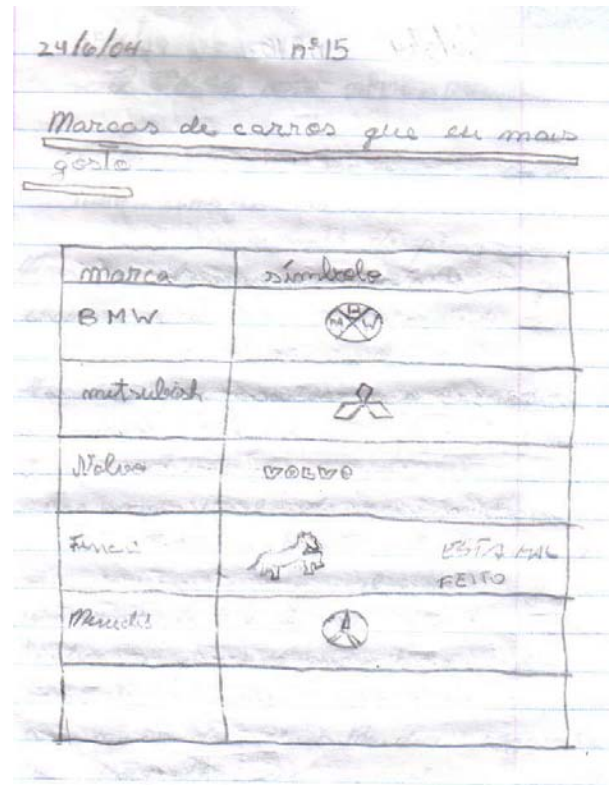 24/6/04 nº 15
Marcas de carros que eu mais
gosto
marca símbolo
BMW BMW
mitsubish
Volvo VOLVO
ESTA MAL
FEITO